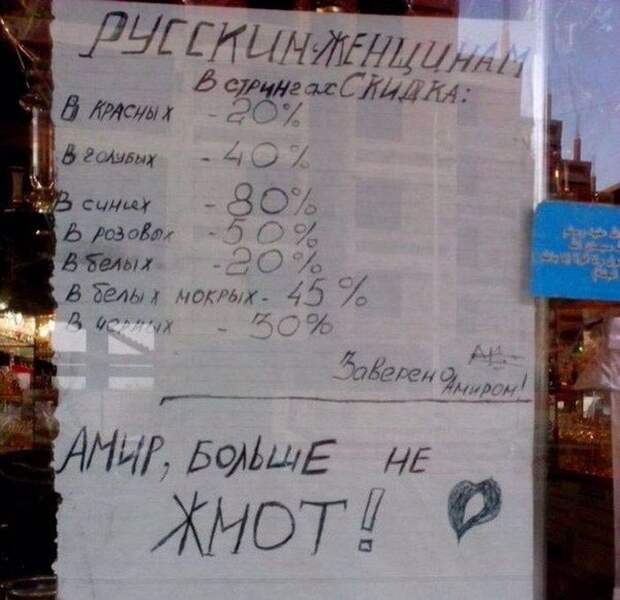 РУССКИМ ЖЕНЩИНАМ
В стрингах СКИДКА:
В КРАСНЫХ - 20%
В голубых - 40%
В синих - 80%
В розовых - 50%
В белых - 20%
В белых мокрых - 45%
В черных - 30%
Заверено Амиром!
АМИР, БОЛЬШЕ НЕ
ЖМОТ!